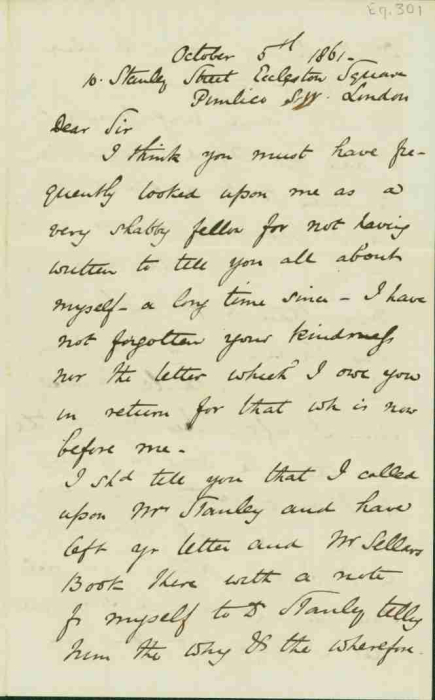 Eg. 301
October 5th 1861-
10. Stanley Street Eccleston Square
Pimlico S.W. London
Dear Sir
I think you must have fre-
quently looked upon me as a
very shabby fellow for not having
written to tell you all about
myself - a long time since - I have
not forgotten your kindness
nor the letter which I owe you
in return for that wh is now
before me -
I shd tell you that I called
upon Mr Stanley and have
left yr letter and Mr Sellars
Book there with a note
fr myself to D Stanley tellg
him the why & the wherefore.